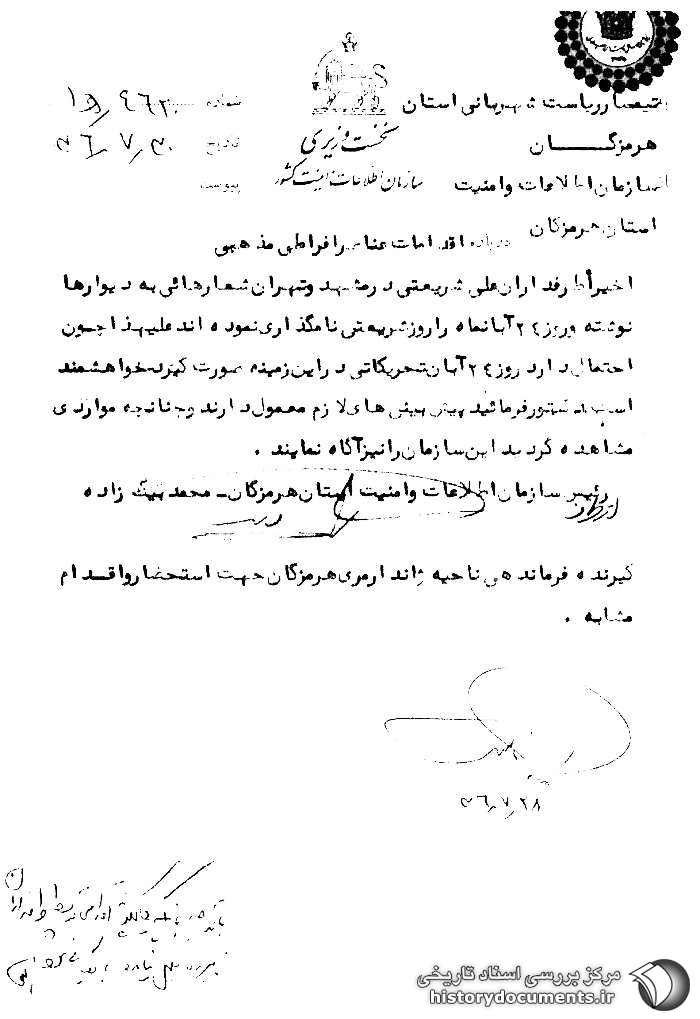 ریاست شهربانی استان
هرمزگان
سازمان اطلاعات و امنیت
استان هرمزگان
نخست وزیری
سازمان اطلاعات و امنیت کشور
شماره
تاریخ ۳۶/۷/۳۰
پیوست
درباره اقدامات عناصر افراطی مذهبی
اخیراً طرفداران علی شریعتی در مشهد و تهران شعارهائی به دیوارها
نوشته و روز ۲۴ آبانماه را روز شریعتی نامگذاری نموده اند علیهذا چون
احتمال دارد روز ۲۴ آبان تحریکاتی در این زمینه صورت گیرد خواهشمند
است دستور فرمائید پیش بینی های لازم معمول دارند و چنانچه مواردی
مشاهده گردید این سازمان را نیز آگاه نمایند .
رئیس سازمان اطلاعات و امنیت استان هرمزگان - محمد بیک زاده
گیرنده فرماندهی ناحیه ژاندارمری هرمزگان جهت استحضار و اقدام
مشابه .
۳۶/۷/۲۸
مرکز بررسی اسناد تاریخی
historydocuments.ir